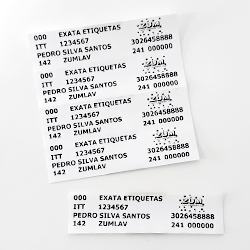 000 EXATA ETIQUETAS ZUM
ITT 1234567 3026458888
PEDRO SILVA SANTOS 241 000000
142 ZUMLAV
000 EXATA ETIQUETAS ZUM
ITT 1234567 3026458888
PEDRO SILVA SANTOS 241 000000
142 ZUMLAV
000 EXATA ETIQUETAS ZUM
ITT 1234567 3026458888
PEDRO SILVA SANTOS 241 000000
142 ZUMLAV
000 EXATA ETIQUETAS ZUM
ITT 1234567 3026458888
PEDRO SILVA SANTOS 241 000000
142 ZUMLAV
000 EXATA ETIQUETAS ZUM
ITT 1234567
PEDRO SILVA SANTOS 3026458888
142 ZUMLAV 241 000000